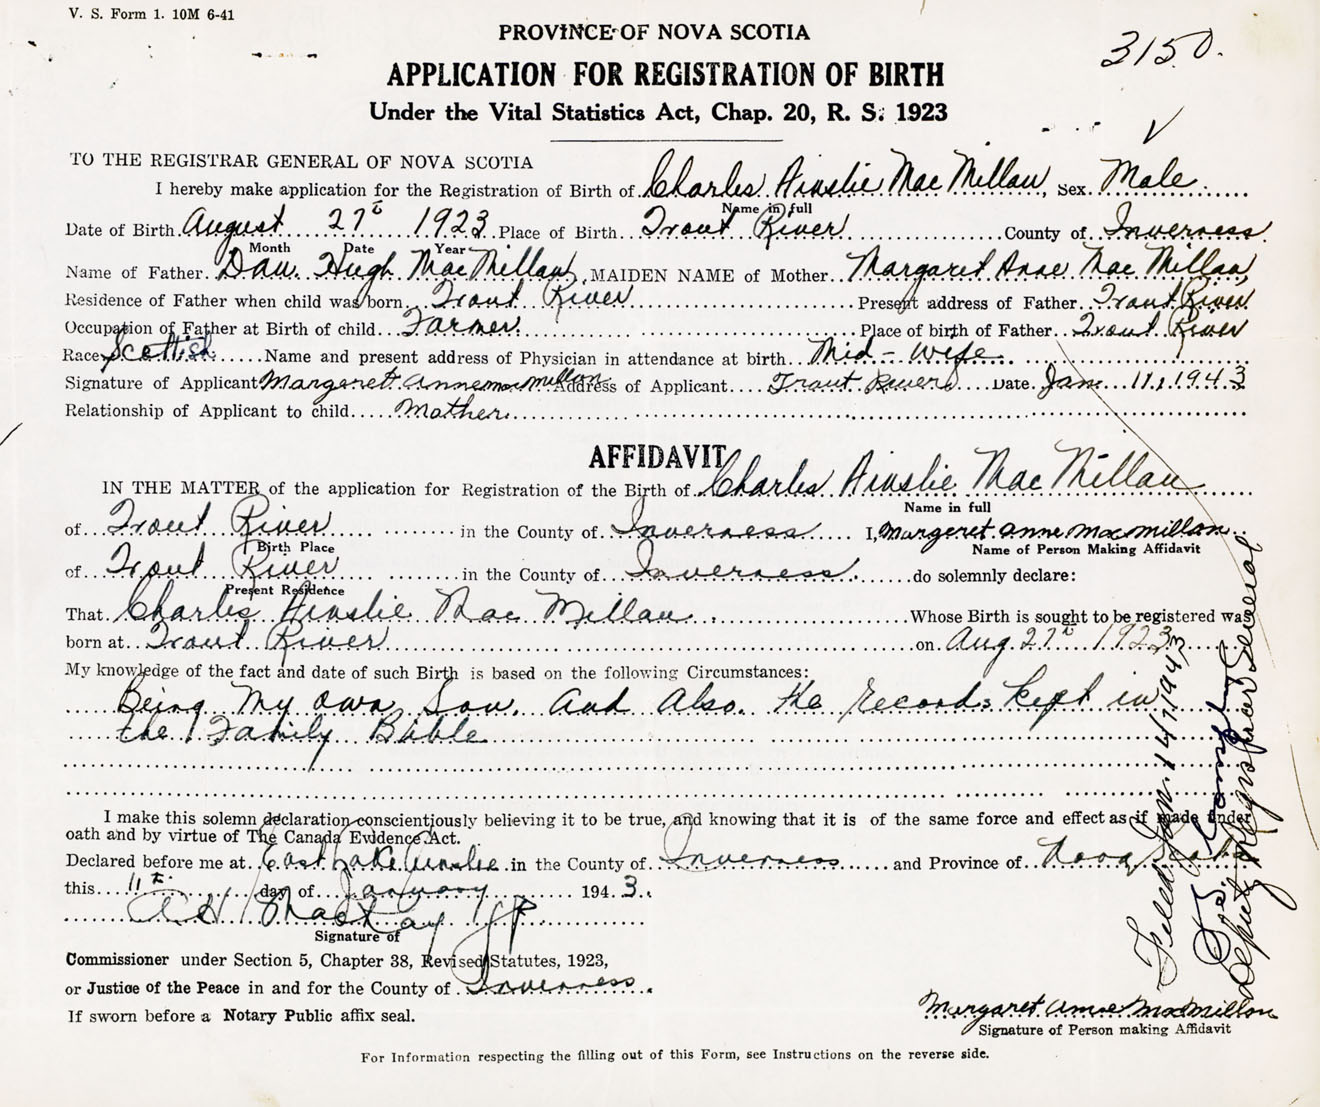 V. S. Form 1. 10M 6-41
PROVINCE OF NOVA SCOTIA
3150.
APPLICATION FOR REGISTRATION OF BIRTH
Under the Vital Statistics Act, Chap. 20, R. S. 1923
TO THE REGISTRAR GENERAL OF NOVA SCOTIA
I hereby make application for the Registration of Birth of Charles Ainslie Mac Millan, Sex Male
Name in full
Date of Birth August 27th 1923 Place of Birth Trout River County of Inverness
Month Date Year
Name of Father Dan Hugh MacMillan, MAIDEN NAME of Mother Margaret Anne Mac Millan,
Residence of Father when child was born Trout River Present address of Father Trout River
Occupation of Father at Birth of child Farmer Place of birth of Father Trout River
Race Scottish Name and present address of Physician in attendance at birth Mid-wife
Signature of Applicant Margaret Anne macmillan Address of Applicant Trout River Date Jan 11, 1943
Relationship of Applicant to child Mother
AFFIDAVIT
IN THE MATTER of the application for Registration of the Birth of Charles Ainslie Mac Millan
Name in full
of Trout River in the County of Inverness I, Margaret anne macmillan
Birth Place Name of Person Making Affidavit
of Trout River in the County of Inverness do solemnly declare:
Present Residence
That Charles Ainslie Mac Millan Whose Birth is sought to be registered was
born at Trout River on Aug 27th 1923
My knowledge of the fact and date of such Birth is based on the following Circumstances:
Being My own Son. And Also. the records kept in
the Family Bible
I make this solemn declaration conscientiously believing it to be true, and knowing that it is of the same force and effect as if made under
oath and by virtue of The Canada Evidence Act.
Declared before me at East Lake Ainslie in the County of Inverness and Province of Nova Scotia
this 11th day of January 1943.
A H MacKay JP
Signature of
Commissioner under Section 5, Chapter 38, Revised Statutes, 1923,
or Justice of the Peace in and for the County of Inverness
If sworn before a Notary Public affix seal.
Margaret Anne MacMillan
Signature of Person making Affidavit
For Information respecting the filling out of this Form, see Instructions on the reverse side.
Filed Jan. 14/1943
Deputy Registrar General